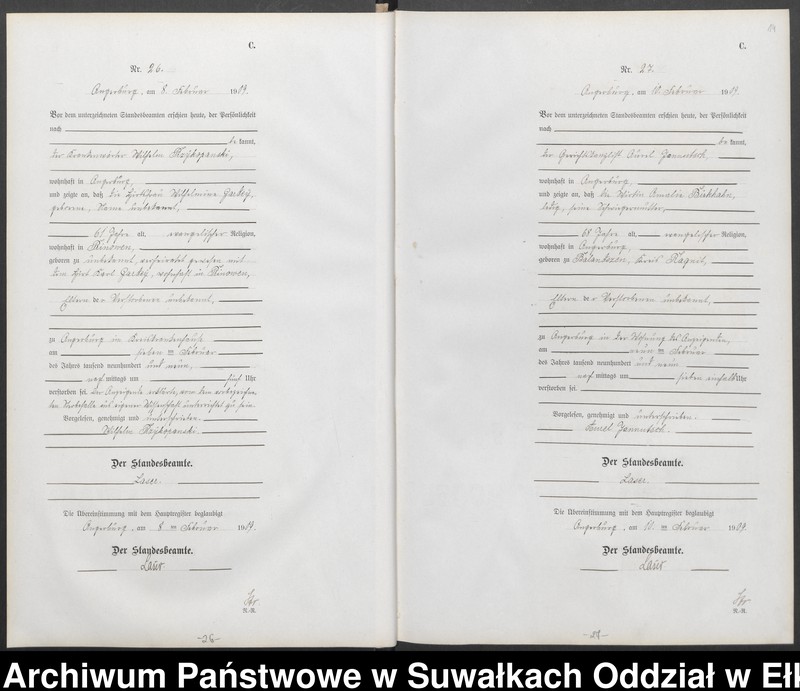 C.
Nr. 26.
Angerburg, am 8. Februar 1909.
Vor dem unterzeichneten Standesbeamten erschien heute, der Persönlichkeit
nach
be kannt,
der Krankenwärter Wilhelm
wohnhaft in Angerburg,
und zeigte an, daß die Hirtfrau Wilhelmine
geborene, Name unbekannt,
61 Jahre alt, evangelischer Religion,
wohnhaft in
geboren zu unbekannt, verheiratet gewesen mit
dem Hirt Karl wohnhaft in
Eltern der Verstorbenen unbekannt,
zu Angerburg im Kreiskrankenhause
am sieben ten Februar
des Jahres tausend neunhundert und neun,
nach mittags um fünf Uhr
verstorben sei. Der Anzeigende erklärte, von dem
Sterbefalle aus eigener Wissenschaft unterrichtet zu sein.
Vorgelesen, genehmigt und unterschrieben.
Wilhelm
Der Standesbeamte.
Laser.
Die Übereinstimmung mit dem Hauptregister beglaubigt
Angerburg, am 8 ten Februar 1909.
Der Standesbeamte.
Laser
N.-R.
-26-
C.
Nr. 27.
Angerburg, am 10. Februar 1909.
Vor dem unterzeichneten Standesbeamten erschien heute, der Persönlichkeit
nach
be kannt,
der Gerichtskanzlist
wohnhaft in Angerburg,
und zeigte an, daß die Wirtin Amalie Birkhahn,
ledig, seine Schwiegermutter,
68 Jahre alt, evangelischer Religion,
wohnhaft in Angerburg,
geboren zu Kreis Ragnit,
Eltern der Verstorbenen unbekannt,
zu Angerburg in der Wohnung des Anzeigenden,
am neun ten Februar
des Jahres tausend neunhundert und neun
nach mittags um sieben einhalb Uhr
verstorben sei.
Vorgelesen, genehmigt und unterschrieben.
Der Standesbeamte.
Laser.
Die Übereinstimmung mit dem Hauptregister beglaubigt
Angerburg, am 10 ten Februar 1909.
Der Standesbeamte.
Laser
N.-R.
-27-
Archiwum Państwowe w Suwałkach Oddział w Ełk